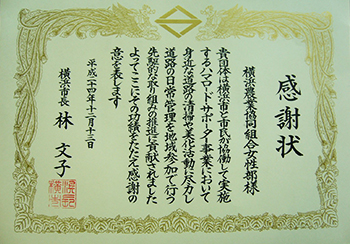 感謝状
横浜農業協同組合女性部様
貴団体は横浜市と市民が協働して実施
するハマロードサポーター事業において
身近な道路の清掃や美化活動に尽力し
道路の日常管理を地域参加で行う
先駆的な取り組みの推進に貢献されました
よってここにその功績をたたえ感謝の
意を表します
平成二十四年十二月十三日
横浜市長 林 文子